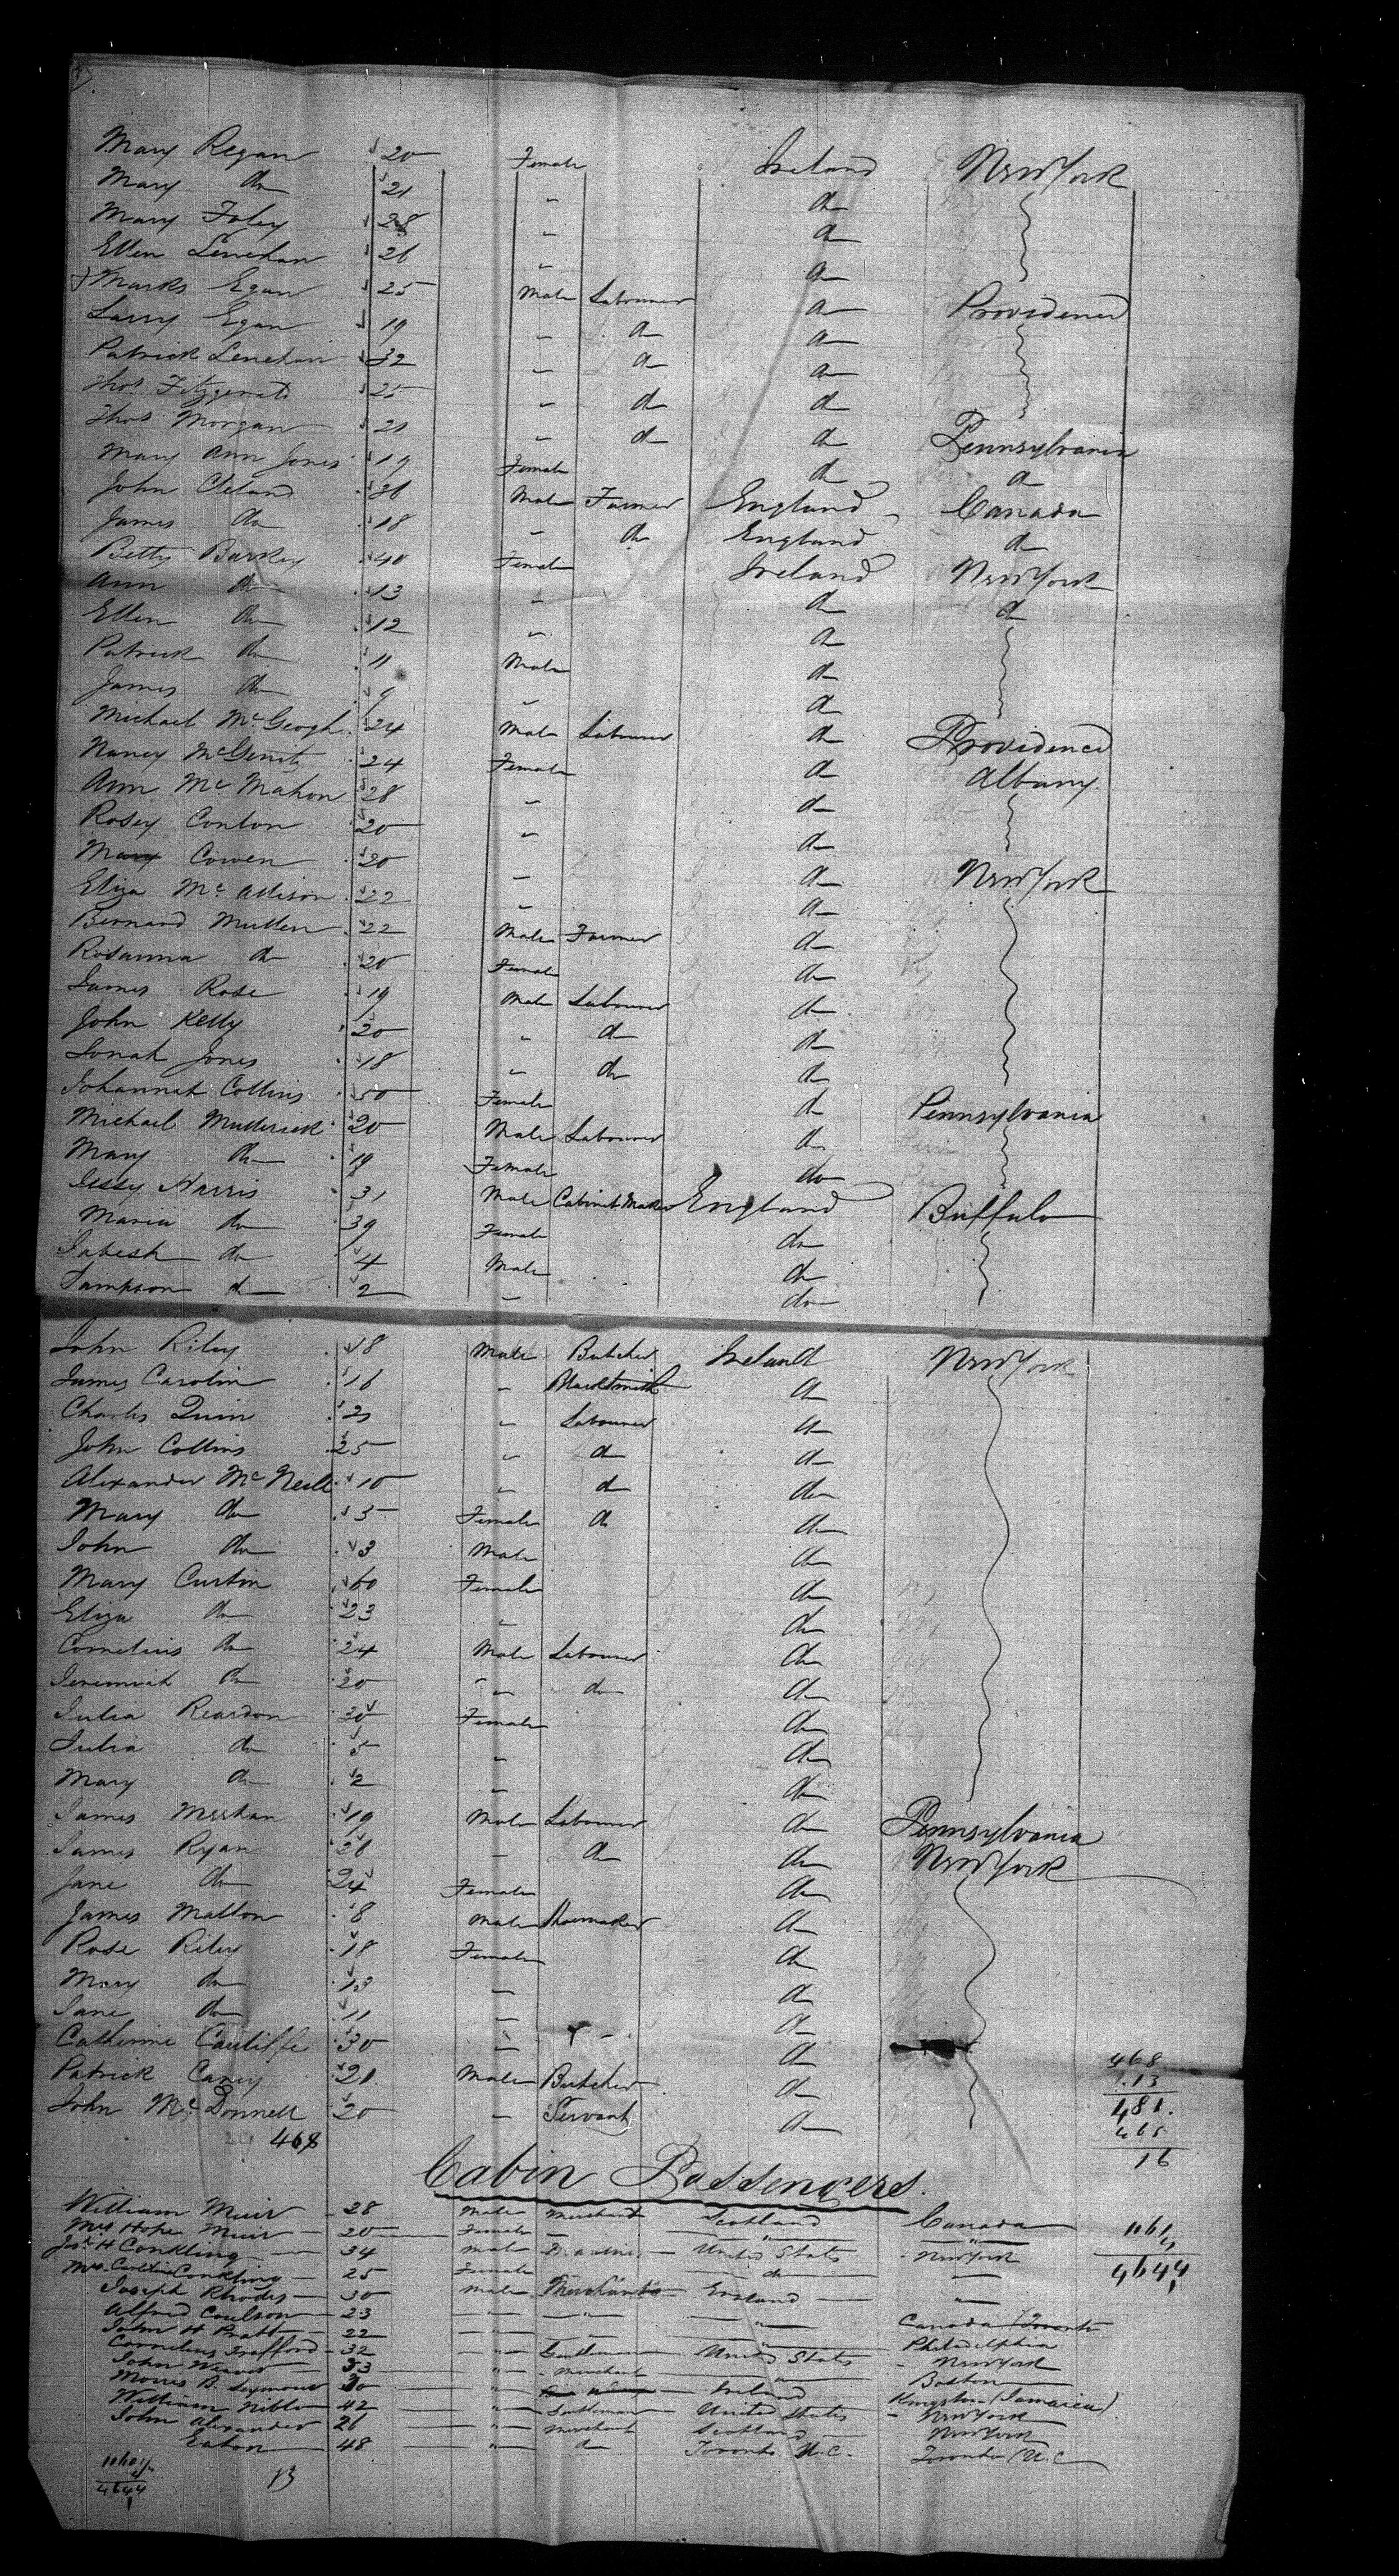 Mary Regan 20 Female Ireland New York
Mary do 21 " do
Mary Foley 28 " do
Ellen Lenehan 26 " do
Marks Egan 25 Male Labourer do Providence
Larry Egan 19 " do do
Patrick Lenehan 32 " do do
Thos Fitzgerald 25 " do do
Thos Morgan 21 " do do Pennsylvania
Mary Ann Jones 19 Female do do
John Cleland 36 Male Farmer England Canada
James do 18 " do England do
Betty Barkey 40 Female Ireland New York
Ann do 13 " do do
Ellen do 12 " do
Patrick do 11 Male do
James do 9 " do
Michael McGeogh 24 Male Labourer do Providence
Nancy 24 Female do Albany
Ann McMahon 28 " do
Rosey Conlon 20 " do
Mary Cowen 20 " do New York
Eliza McAllison 22 " do
Bernard Mullen 22 Male Farmer do
Rosanna do 20 Female do
James Rose 19 Male Labourer do
John Kelly 20 " do do
Jonah Jones 18 " do do
Johannah Collins 50 Female do Pennsylvania
Michael 20 Male Labourer do
Mary do 19 Female do
Jessy Harris 31 Male Cabinet Maker England Buffalo
Maria do 39 Female do
Jabesh do 4 Male do
Sampson do 35 2 " do
John Riley 18 Male Butcher Ireland New York
James Carolin 16 " Blacksmith do
Charles Quin 21 " Labourer do
John Collins 25 " do do
Alexander McNeill 10 " do do
Mary do 5 Female do do
John do 3 Male do
Mary Curtin 60 Female do
Eliza do 23 " do
Cornelius do 24 Male Labourer do
Jeremiah do 20 " do do
Julia Reardon 30 Female do
Julia do 5 " do
Mary do 2 " do
James Meehan 19 Male Labourer do Pennsylvania
James Ryan 26 " do do New York
Jane do 24 Female do
James Mallon 8 Male Shoemaker do
Rose Riley 18 Female do
Mary do 13 " do
Jane do 11 " do
Catherine Cauliffe 30 " do
Patrick Caney 21 Male Butcher do
John McDonnell 20 " Servant do
468
468
13
481
465
16
Cabin Passengers.
William Muir 28 Male Merchant Scotland Canada
Mrs Hope Muir 20 Female " "
Jas H Conkling 34 Male United States New York
Mrs Caroline Conkling 25 Female do "
Joseph Rhodes 30 Male Merchant England "
Alfred Coulson 23 " " " Canada Toronto
John H Pratt 22 " " " Philadelphia
Cornelius Trafford 32 " Gentleman United States New York
John Weaver 33 " Merchant " Boston
Morris B. Seymour 30 " Ireland Kingston (Jamaica)
William Niblo 42 " Gentleman United States New York
John Alexander 26 " Merchant Scotland New York
Eaton 48 " do Toronto U.C. Toronto U.C
1161
4
4644
4644
13